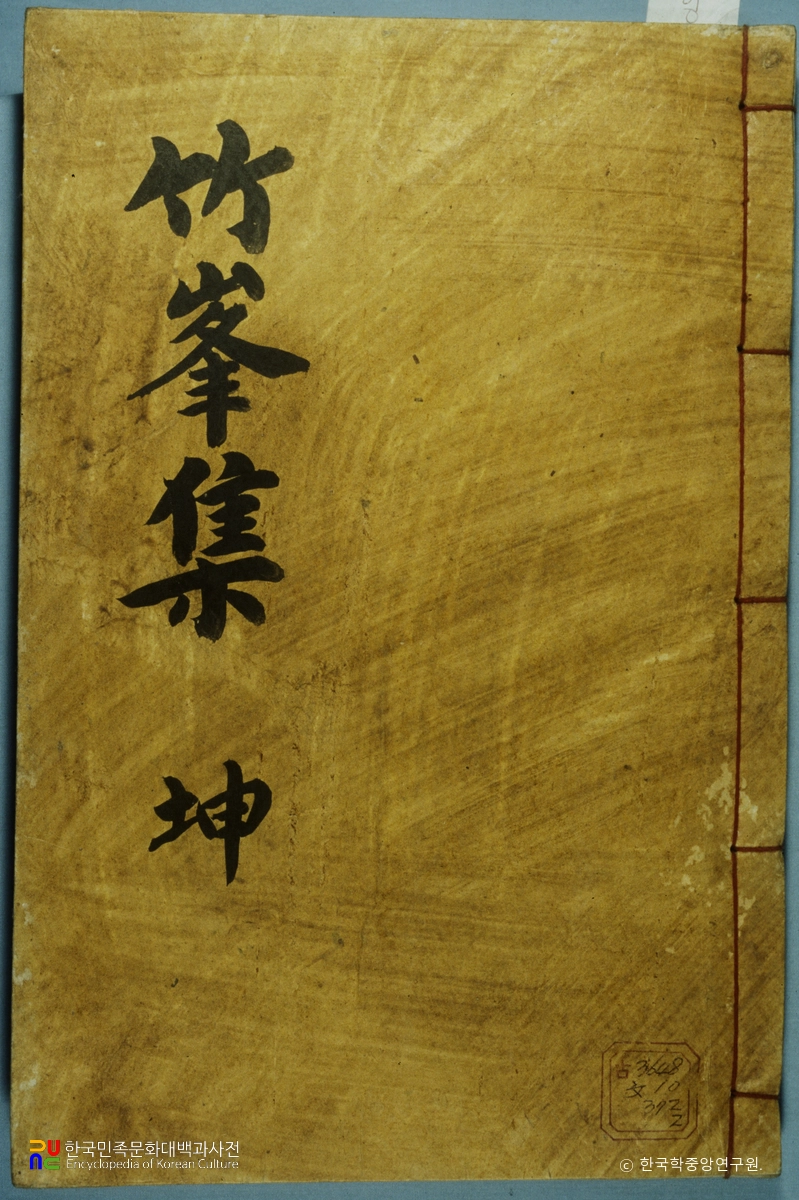 竹峯集 坤
古 3648
文 10
392
2
한국민족문화대백과사전
Encyclopedia of Korean Culture
© 한국학중앙연구원.